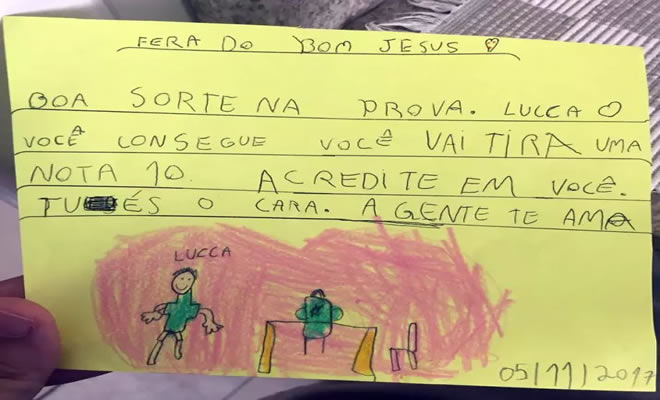 FERA DO BOM JESUS ♡
BOA SORTE NA PROVA. LUCCA ♡
VOCÊ CONSEGUE VOCÊ VAI TIRA UMA
NOTA 10. ACREDITE EM VOCÊ.
TU ÉS O CARA. A GENTE TE AMA
LUCCA
05/11/2017